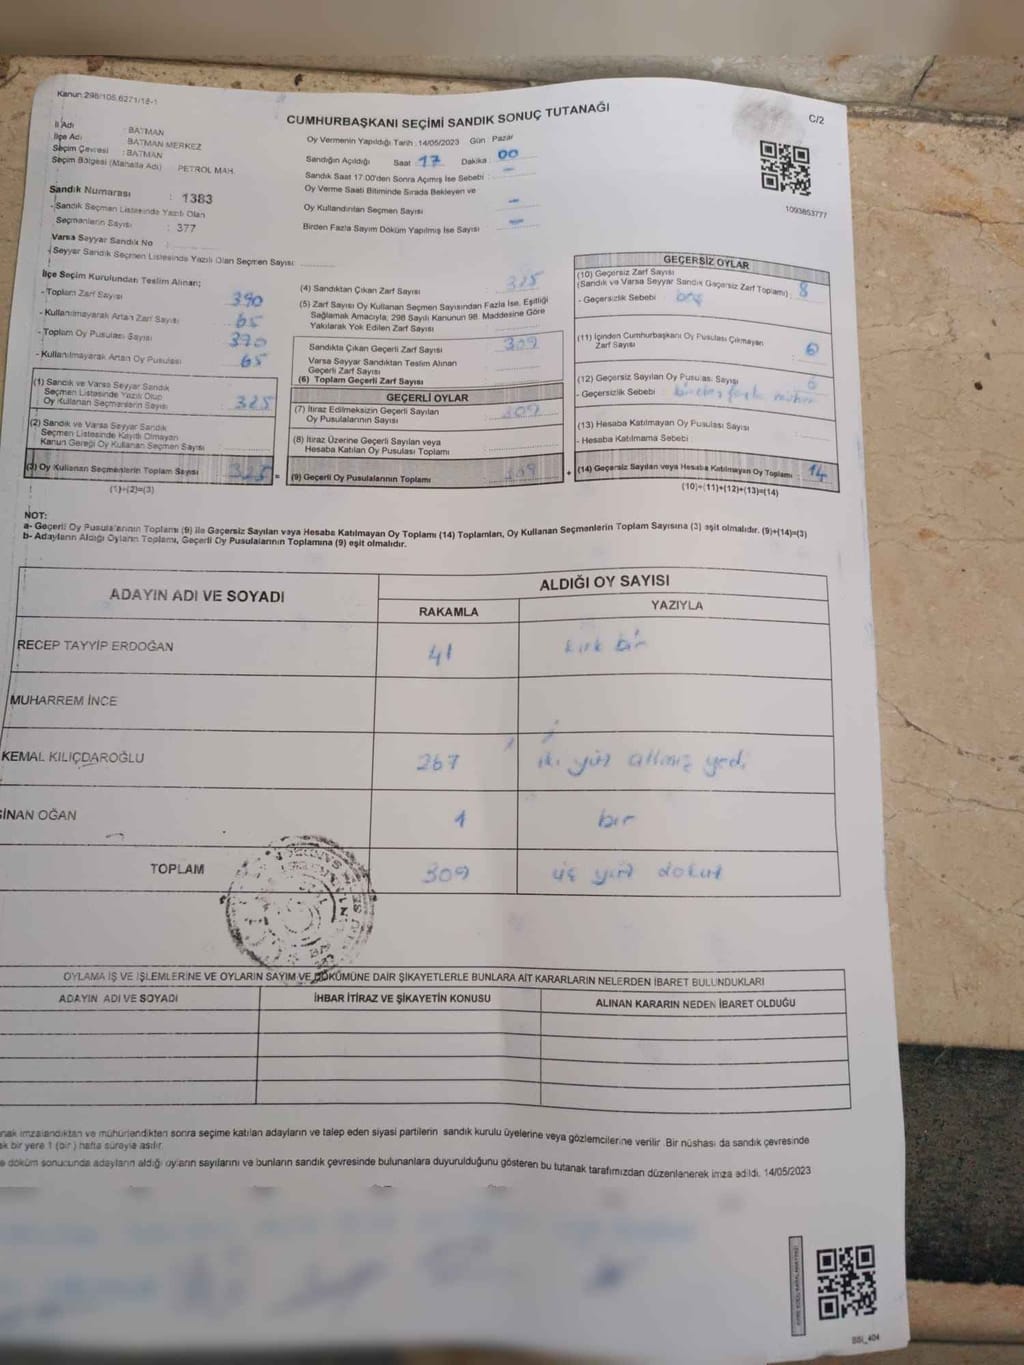 Kanun 298/105,6271/18-1
CUMHURBAŞKANI SEÇİMİ SANDIK SONUÇ TUTANAĞI
C/2
İl Adı : BATMAN
İlçe Adı : BATMAN MERKEZ
Seçim Çevresi : BATMAN
Seçim Bölgesi (Mahalle Adı) PETROL MAH.
Sandık Numarası : 1383
- Sandık Seçmen Listesinde Yazılı Olan
Seçmenlerin Sayısı : 377
Varsa Seyyar Sandık No :
- Seyyar Sandık Seçmen Listesinde Yazılı Olan Seçmen Sayısı:
Oy Vermenin Yapıldığı Tarih : 14/05/2023 Gün Pazar
Sandığın Açıldığı Saat : 17 Dakika : 00
Sandık Saat 17.00'den Sonra Açılmış İse Sebebi : -
Oy Verme Saati Bitiminde Sırada Bekleyen ve
Oy Kullandırılan Seçmen Sayısı -
Birden Fazla Sayım Döküm Yapılmış İse Sayısı -
1093853777
İlçe Seçim Kurulundan Teslim Alınan;
- Toplam Zarf Sayısı 390
- Kullanılmayarak Artan Zarf Sayısı 65
- Toplam Oy Pusulası Sayısı 390
- Kullanılmayarak Artan Oy Pusulası 65
(1) Sandık ve Varsa Seyyar Sandık
Seçmen Listesinde Yazılı Olup
Oy Kullanan Seçmenlerin Sayısı 325
(2) Sandık ve Varsa Seyyar Sandık
Seçmen Listesinde Kayıtlı Olmayan
Kanun Gereği Oy Kullanan Seçmen Sayısı
(3) Oy Kullanan Seçmenlerin Toplam Sayısı 325
(1)+(2)=(3)
(4) Sandıktan Çıkan Zarf Sayısı 325
(5) Zarf Sayısı Oy Kullanan Seçmen Sayısından Fazla İse, Eşitliği
Sağlamak Amacıyla; 298 Sayılı Kanunun 98. Maddesine Göre
Yakılarak Yok Edilen Zarf Sayısı
Sandıkta Çıkan Geçerli Zarf Sayısı 309
Varsa Seyyar Sandıktan Teslim Alınan
Geçerli Zarf Sayısı
(6) Toplam Geçerli Zarf Sayısı
GEÇERLİ OYLAR
(7) İtiraz Edilmeksizin Geçerli Sayılan
Oy Pusulasının Sayısı 309
(8) İtiraz Üzerine Geçerli Sayılan veya
Hesaba Katılan Oy Pusulası Toplamı
(9) Geçerli Oy Pusulalarının Toplamı 309
GEÇERSİZ OYLAR
(10) Geçersiz Zarf Sayısı
(Sandık ve Varsa Seyyar Sandık Geçersiz Zarf Toplamı) : 8
- Geçersizlik Sebebi : boş
(11) İçinden Cumhurbaşkanı Oy Pusulası Çıkmayan
Zarf Sayısı
(12) Geçersiz Sayılan Oy Pusulası Sayısı
- Geçersizlik Sebebi : birden fazla mühür
(13) Hesaba Katılmayan Oy Pusulası Sayısı
- Hesaba Katılmama Sebebi :
(14) Geçersiz Sayılan veya Hesaba Katılmayan Oy Toplamı : 14
(10)+(11)+(12)+(13)=(14)
NOT:
a- Geçerli Oy Pusulalarının Toplamı (9) ile Geçersiz Sayılan veya Hesaba Katılmayan Oy Toplamı (14) Toplamları, Oy Kullanan Seçmenlerin Toplam Sayısına (3) eşit olmalıdır. (9)+(14)=(3)
b- Adayların Aldığı Oyların Toplamı, Geçerli Oy Pusulalarının Toplamına (9) eşit olmalıdır.
ADAYIN ADI VE SOYADI
ALDIĞI OY SAYISI
RAKAMLA YAZIYLA
RECEP TAYYİP ERDOĞAN 41 kırk bir
MUHARREM İNCE
KEMAL KILIÇDAROĞLU 267 iki yüz altmış yedi
SİNAN OĞAN 1 bir
TOPLAM 309 üç yüz dokuz
OYLAMA İŞ VE İŞLEMLERİNE VE OYLARIN SAYIM VE DÖKÜMÜNE DAİR ŞİKAYETLERLE BUNLARA AİT KARARLARIN NELERDEN İBARET BULUNDUKLARI
ADAYIN ADI VE SOYADI İHBAR İTİRAZ VE ŞİKAYETİN KONUSU ALINAN KARARIN NEDEN İBARET OLDUĞU
nak imzalandıktan ve mühürlendikten sonra seçime katılan adayların ve talep eden siyasi partilerin sandık kurulu üyelerine veya gözlemcilerine verilir .Bir nüshası da sandık çevresinde
ak bir yere 1 (bir ) hafta süreyle asılır.
e döküm sonucunda adayların aldığı oyların sayılarını ve bunların sandık çevresinde bulunanlara duyurulduğunu gösteren bu tutanak tarafımızdan düzenlenerek imza edildi. 14/05/2023